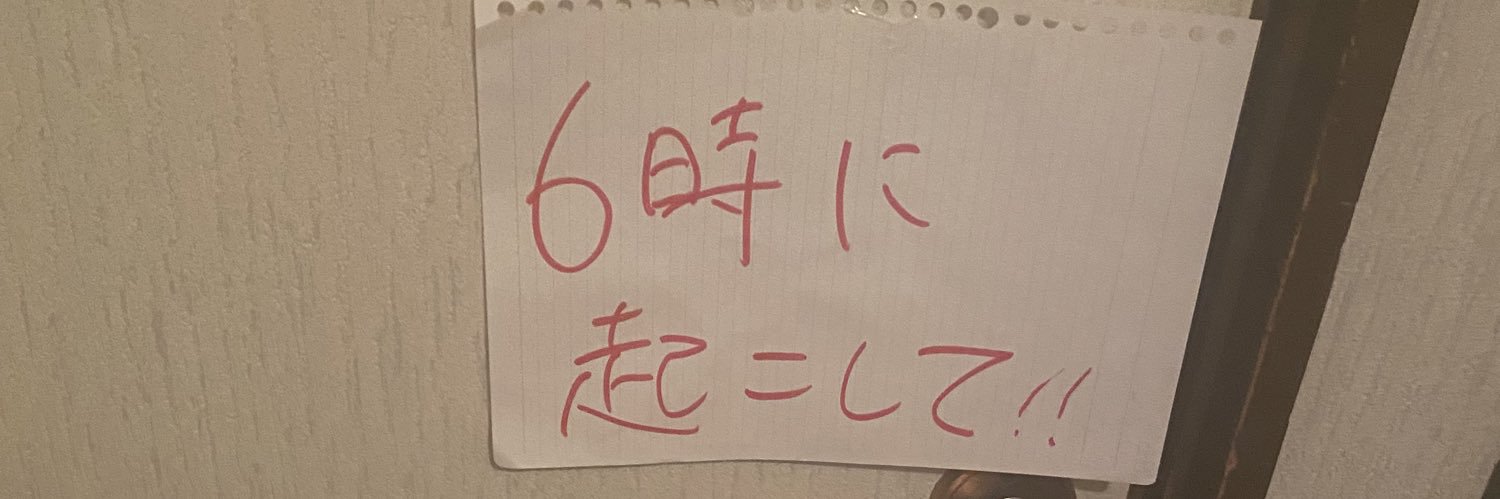 6時に
起こして!!